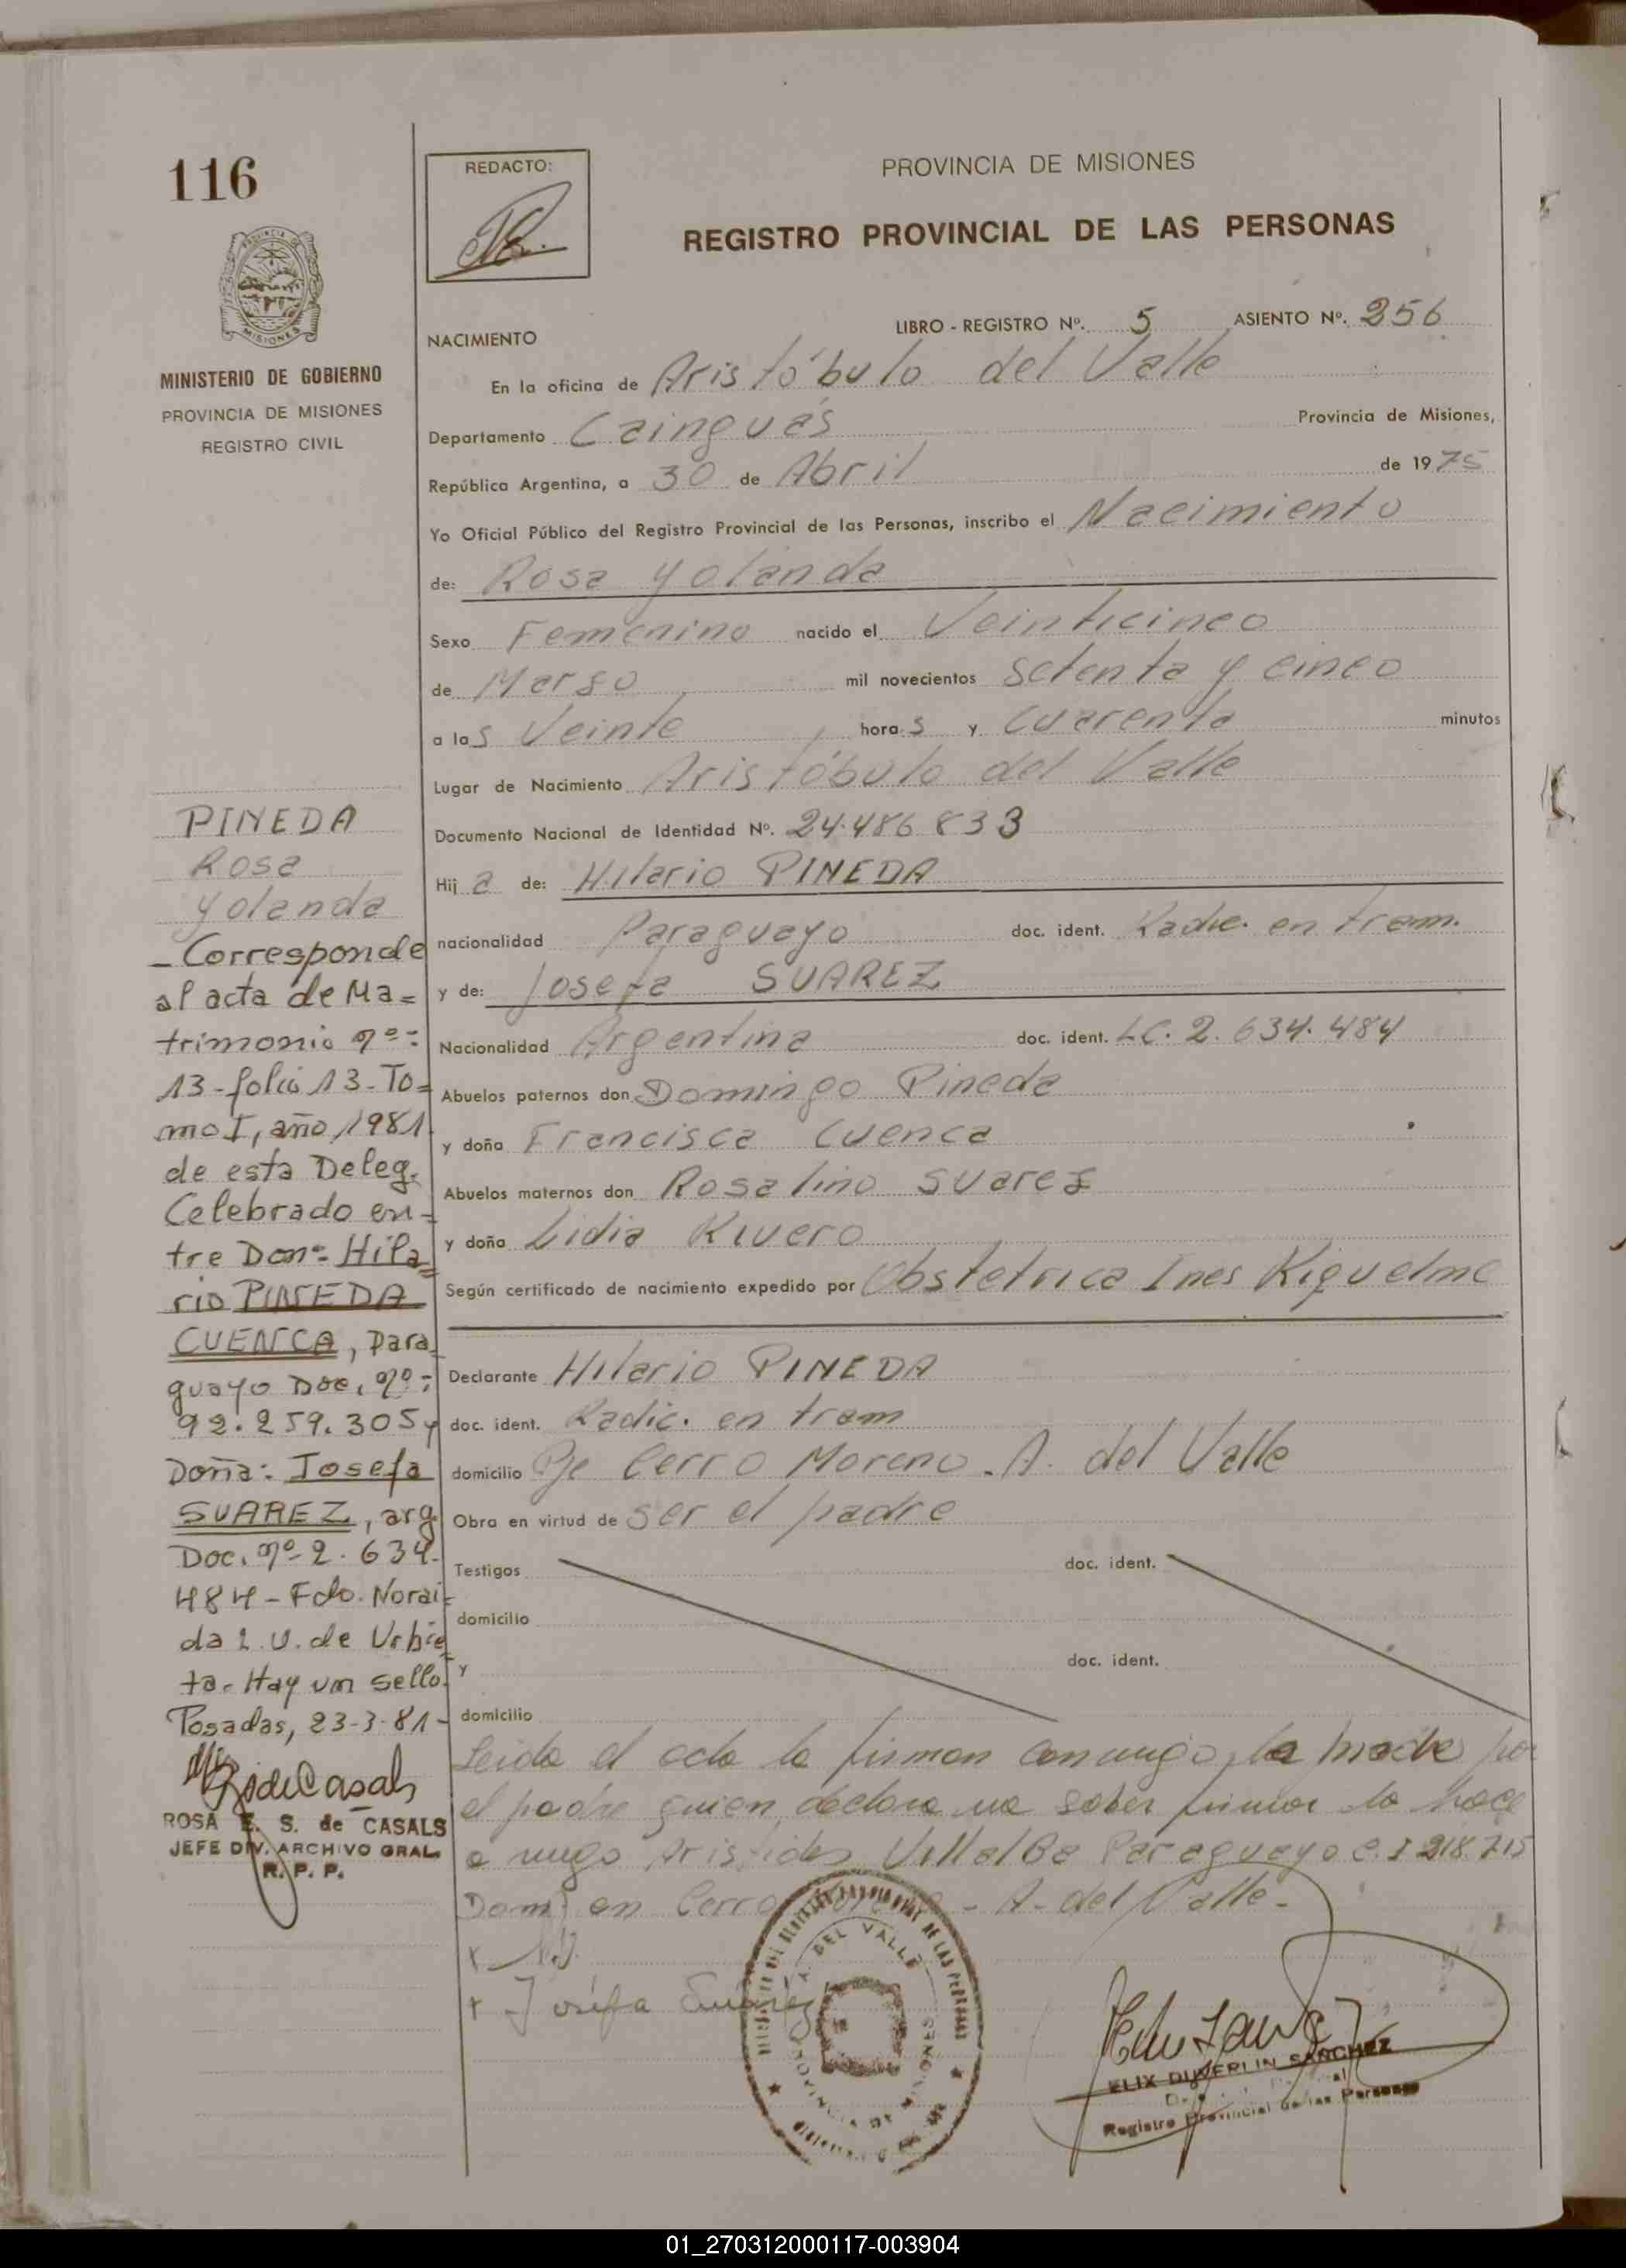 116
REDACTO:
PROVINCIA DE MISIONES
REGISTRO PROVINCIAL DE LAS PERSONAS
PROVINCIA DE
MISIONES
MINISTERIO DE GOBIERNO
PROVINCIA DE MISIONES
REGISTRO CIVIL
LIBRO - REGISTRO Nº. 5 ASIENTO Nº. 256
NACIMIENTO
En la oficina de Aristóbulo del Valle
Departamento Cainguás Provincia de Misiones,
República Argentina, a 30 de Abril de 1975
Yo Oficial Público del Registro Provincial de las Personas, inscribo el Nacimiento
de: Rosa Yolanda
Sexo Femenino nacido el Veinticinco
de Marso mil novecientos setenta y cinco
a las Veinte horas y cuarenta minutos
Lugar de Nacimiento Aristóbulo del Valle
Documento Nacional de Identidad Nº. 24.486833
Hija de: Hilario PINEDA
nacionalidad Paraguayo doc. ident. Radic. en tram.
y de: Josefa SUAREZ
Nacionalidad Argentina doc. ident. LC. 2.634.484
Abuelos paternos don Domingo Pineda
y doña Francisca Cuenca
Abuelos maternos don Rosalino Suares
y doña Lidia Rivero
Según certificado de nacimiento expedido por Obstetrica Ines Riquelme
Declarante Hilario PINEDA
doc. ident. Radic. en tram
domicilio Pje Cerro Moreno. A. del Valle
Obra en virtud de ser el padre
Testigos doc. ident.
domicilio
y doc. ident.
domicilio
Leida el acta la firman conmigo, la madre por
el padre quien declara no saber firmar lo hace
a ruego Aristides Villalba Paraguayo C.I 218.715
Dom. en Cerro - A. del Valle.
+ Josefa Suárez
A. DEL VALLE
PROVINCIA DE MISIONES
DE LAS PERSONAS
ELIX DUVERLIN SANCHEZ
Registro Provincial de las Personas
PINEDA
Rosa
Yolanda
- Corresponde
al acta de Ma=
trimonio nº:
13-folio 13-To=
mo I, año 1981
de esta Deleg.
Celebrado en-
tre Don: Hila=
rio PINEDA
CUENCA, para
guayo Doc. nº:
92.259.305 y
Doña: Josefa
SUAREZ, arg.
Doc. nº 2.634.
484 - Fdo. Norai-
da L.U. de Urbie
ta. Hay un sello.
Posadas, 23-3-81-
ROSA E. S. de CASALS
JEFE DIV. ARCHIVO GRAL.
R. P. P.
01_270312000117-003904